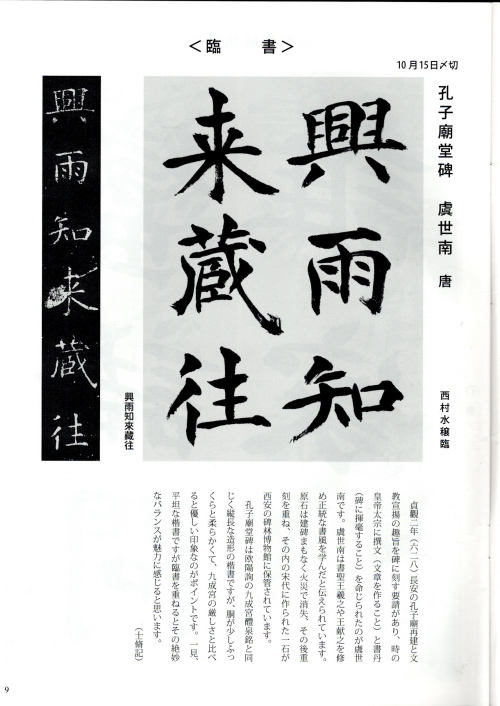 ＜臨　書＞
10月15日〆切
孔子廟堂碑　虞世南　唐
西村水穣臨
興雨知
来蔵往
興雨知來藏往
興雨知来蔵往
貞観二年（六二八）長安の孔子廟再建と文
教宣揚の趣旨を碑に刻す要請があり、時の
皇帝太宗に撰文（文章を作ること）と書丹
（碑に揮毫すること）を命じられたのが虞世
南です。虞世南は書聖王羲之や王献之を修
め正統な書風を学んだと伝えられています。
原石は建碑まもなく火災で消失、その後重
刻を重ね、その内の宋代に作られた一石が
西安の碑林博物館に保管されています。
孔子廟堂碑は欧陽詢の九成宮醴泉銘と同
じく縦長な造形の楷書ですが、胴が少しふっ
くらと柔らかくて、九成宮の厳しさと比べ
ると優しい印象なのがポイントです。一見、
平坦な楷書ですが臨書を重ねるとその絶妙
なバランスが魅力に感じると思います。
（十脩記）
9